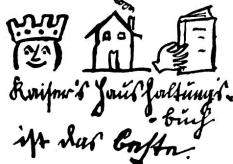 Kaiser's Haushaltungs-
buch
ist das beste.